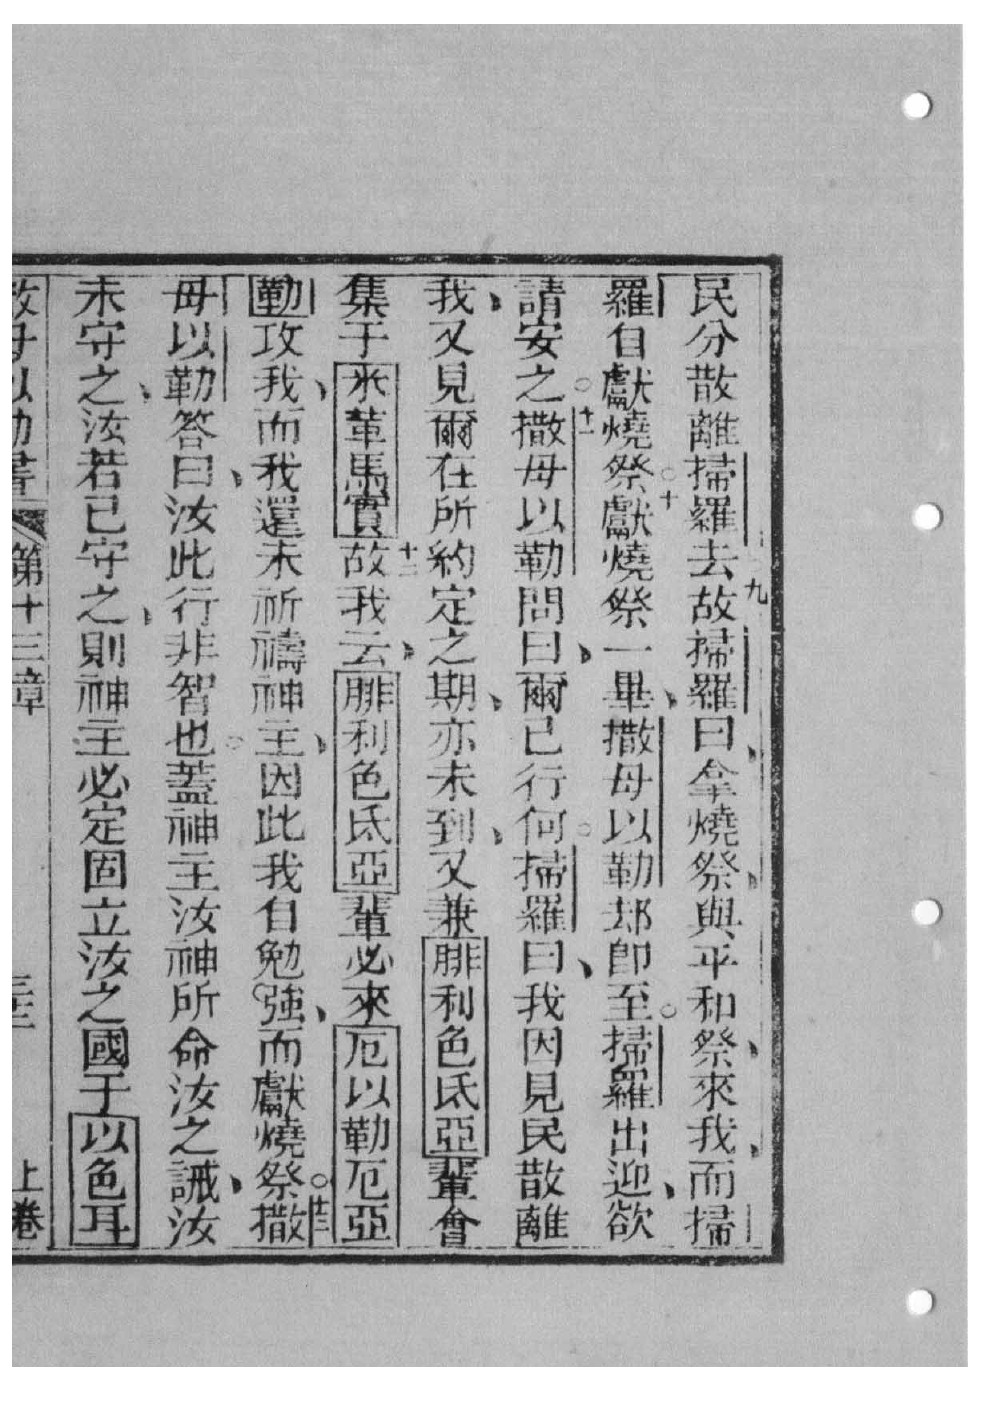 民分散離掃羅去故九掃羅曰拿燒祭與平和祭來我而掃
羅自獻燒祭獻十燒祭一畢撒母以勒却即至掃羅出迎欲
請安之十一撒母以勒問曰爾已行何掃羅曰我因見民散離
我又見爾在所約定之期亦未到又兼腓利色氐亞輩會
集于米革馬實十二故我云腓利色氐亞輩必來厄以勒厄亞
勒攻我而我還未祈禱神主因此我自勉強而獻燒祭十三撒
毋以勒答曰汝此行非智也蓋神主汝神所命汝之誡汝
未守之汝若已守之則神主必定固立汝之國于以色耳
撒母以勒書 第十三章 上卷